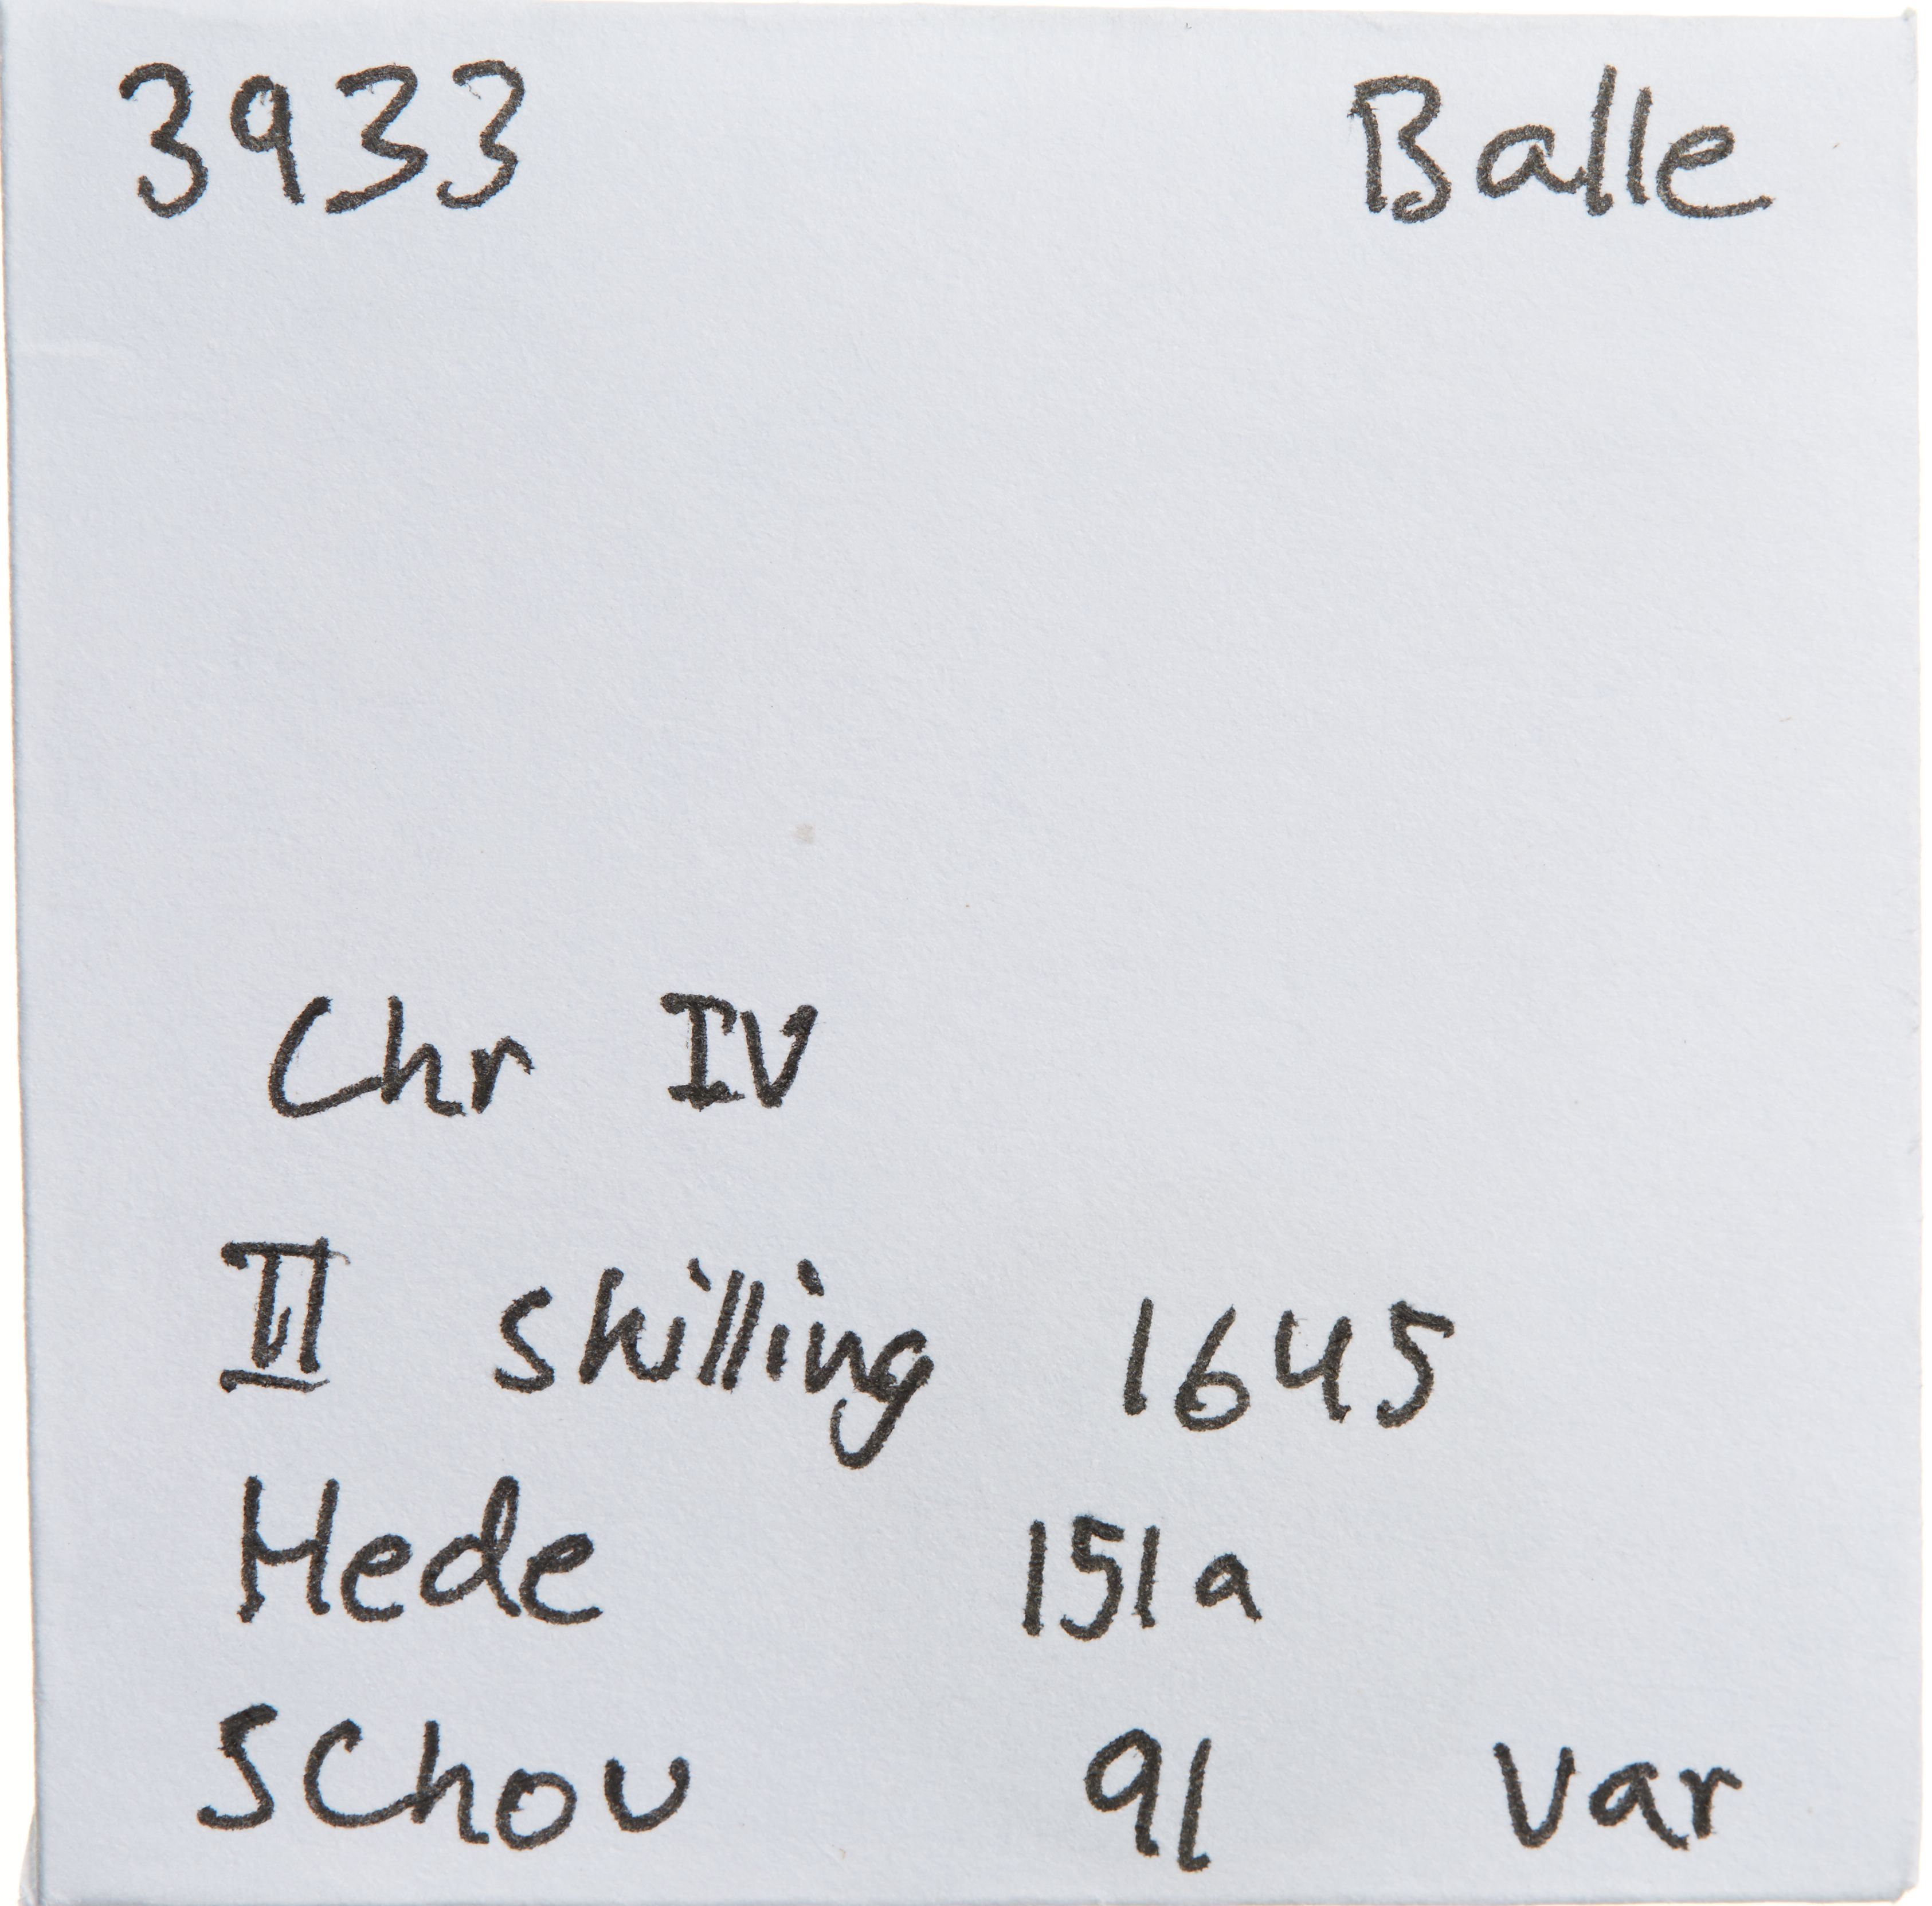 3933 Balle
Chr IV
II skilling 1645
Hede 151a
Schou 91 var